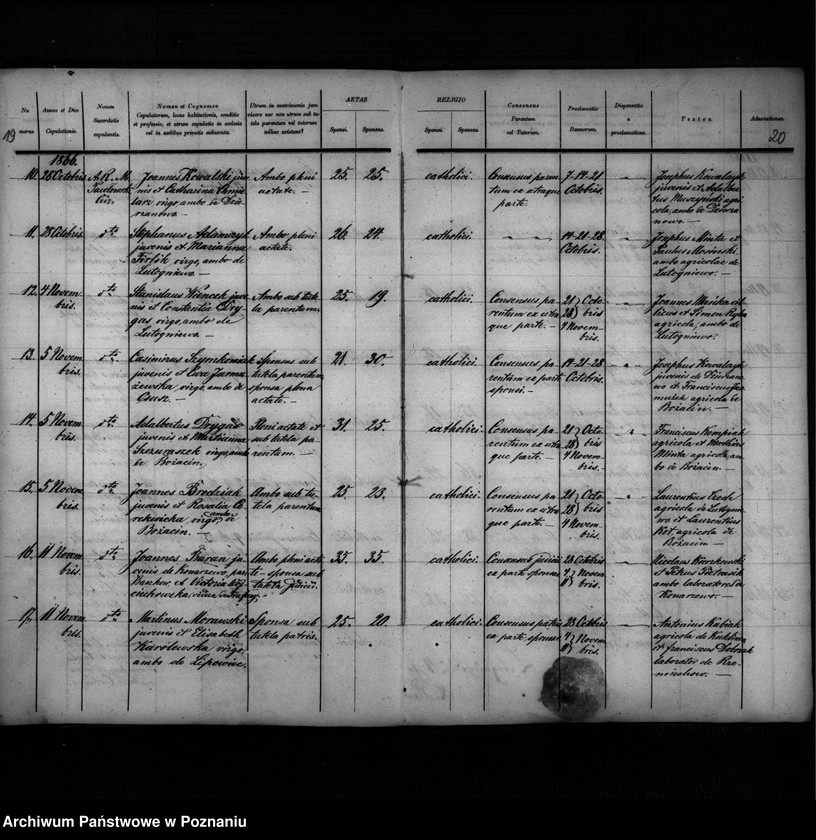 19
20
Nu
merus
Annus et Dies
Copulationis.
Nomen
Sacerdotis
copulantis.
Nomen et Cognomen
Copulatorum, locus habitationis, conditio
et professio, et utrum copulatio in ecclesia
vel in aedibus privatis subsecuta.
Utrum in matrimonio jam
vixere nec non utrum sub tu-
tela parentum vel tutorum
adhuc existant?
AETAS
Sponsi.
Sponsae.
RELIGIO
Sponsi.
Sponsae.
Consensus
Parentum
vel Tutorum.
Proclamatio
Bannorum.
Dispensatio
a
proclamatione.
Testes.
Adnotationes.
1866.
10. 28 Octobris
A.R.M.
Joannes Kowalski ju-
nis et Catharina
virgo, ambo de
Ambo pleni
aetate.
25. 25.
catholici.
Consensus paren
tum ex utraque
parte.
7. 14. 21
Octobris.
Josephus Kowalczyk
juvenis et Adalber
tus agri
cola, ambo de
11. 28 Octobris.
dto
Stephanus Adamczyk
juvenis et Marianna
virgo, ambo de
Lutogniewo. —
Ambo pleni
aetate.
26. 24.
catholici.
14. 21. 28
Octobris.
Josephus Minta et
Paulus
ambo agricolae de
Lutogniewo. —
12. 4 Novem
bris.
dto
Stanislaus juve
nis et Constantia Dry-
gas virgo, ambo de
Lutogniewo. —
Ambo sub tute
la parentum.
25. 19.
catholici.
Consensus pa-
rentum ex utra
que parte. —
21 Octo
28 bris
4 Novem
bris.
Joannes
et Simon Ryba
agricola, ambo de
Lutogniewo.
13. 5 Novem
bris.
dto
Casimirus Szymkowiak
juvenis et Eva
virgo, ambo de
Sponsus sub
tutela parentum
sponsa plena
aetate. —
21. 30.
catholici.
Consensus pa-
rentum ex parte
sponsi. —
14. 21. 28
Octobris.
Josephus Kowalczyk
juvenis de
et Franciscus
agricola de
Bożacin. —
14. 5 Novem
bris.
dto
Adalbertus Drygas
juvenis et Marianna
virgo, ambo
de Bożacin.
Pleni aetate et
sub tutela pa-
rentum. —
31. 25.
catholici.
Consensus pa-
rentum ex utra
que parte. —
21 Octo
28 bris
4 Novem
bris.
Franciscus
agricola et
Minta agricola, am
bo de Bożacin. —
15. 5 Novem
bris.
dto
Joannes Brodziak
juvenis et Rosalia
virgo, ambo de
Bożacin. —
Ambo sub tu-
tela parentum
25. 23.
catholici.
Consensus pa-
rentum ex utra
que parte —
21 Octo
28 bris
4 Novem
bris.
Laurentius
agricola de Lutognie
wo et Laurentius
Kot agricola de
Bożacin —
16. 11 Novem
bris.
dto
Joannes Baran ju-
venis de Konarzewo,
et Victoria
Ambo pleni aeta
te — sponsa sub
tutela judicii.
35. 35.
catholici.
Consensus judicii
ex parte sponsae
28 Octobris
4 Novem
11 bris.
Nicolaus
et Petrus Pietrasik
ambo laboratores de
Konarzewo. —
17. 11 Novem
bris.
dto
Martinus Morawski
juvenis et Elisabeth
Karolewska virgo,
ambo de Lipowiec.
Sponsa sub
tutela patris.
25. 20.
catholici.
Consensus patris
ex parte sponsae
28 Octobris
4 Novem
11 bris.
Antonius Kubiak
agricola de
et Franciscus Dobrzak
laborator de
Archiwum Państwowe w Poznaniu